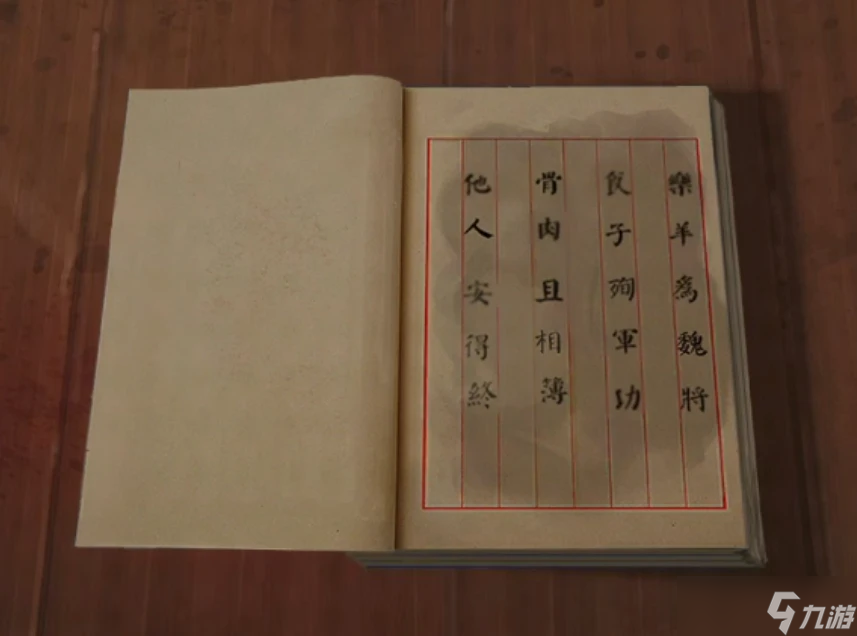 樂羊為魏將
食子殉軍功
骨肉且相薄
他人安得終
九游